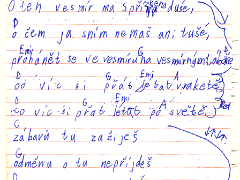 O ten vesmír má spřízněné duše,
D
o čem já sním nemáš ani tuše,
Emi G
prohánět se ve vesmíru na vesmírný
D G Emi A
víc si přát létat v raketě
D G Emi A
co víc si přát létat po světě.
C
zábavu tu zažiješ
G
odměnu o tu nepřijdeš
D